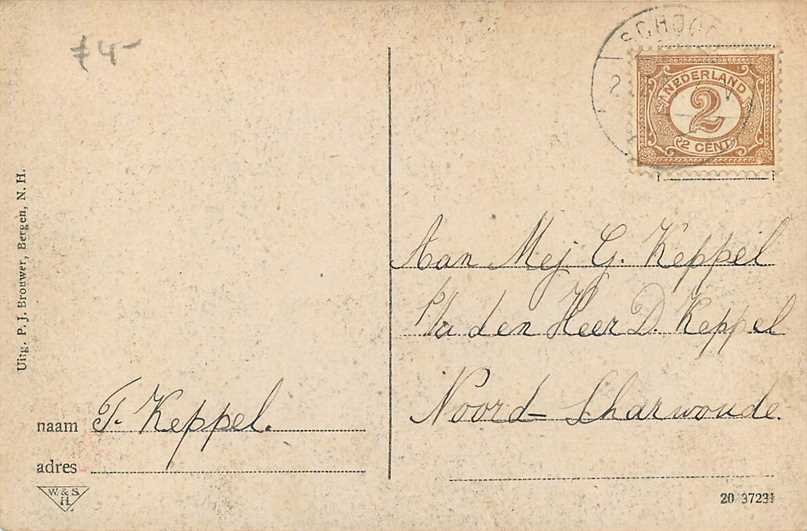 ƒ 4-
SCHOO
NEDERLAND
2
2 CENT
Uitg. P. J. Brouwer, Bergen, N. H.
Aan Mej G. Keppel
P/a den Heer D. Keppel
Noord-Scharwoude.
naam T. Keppel.
adres
W. & S.
H.
20 37231